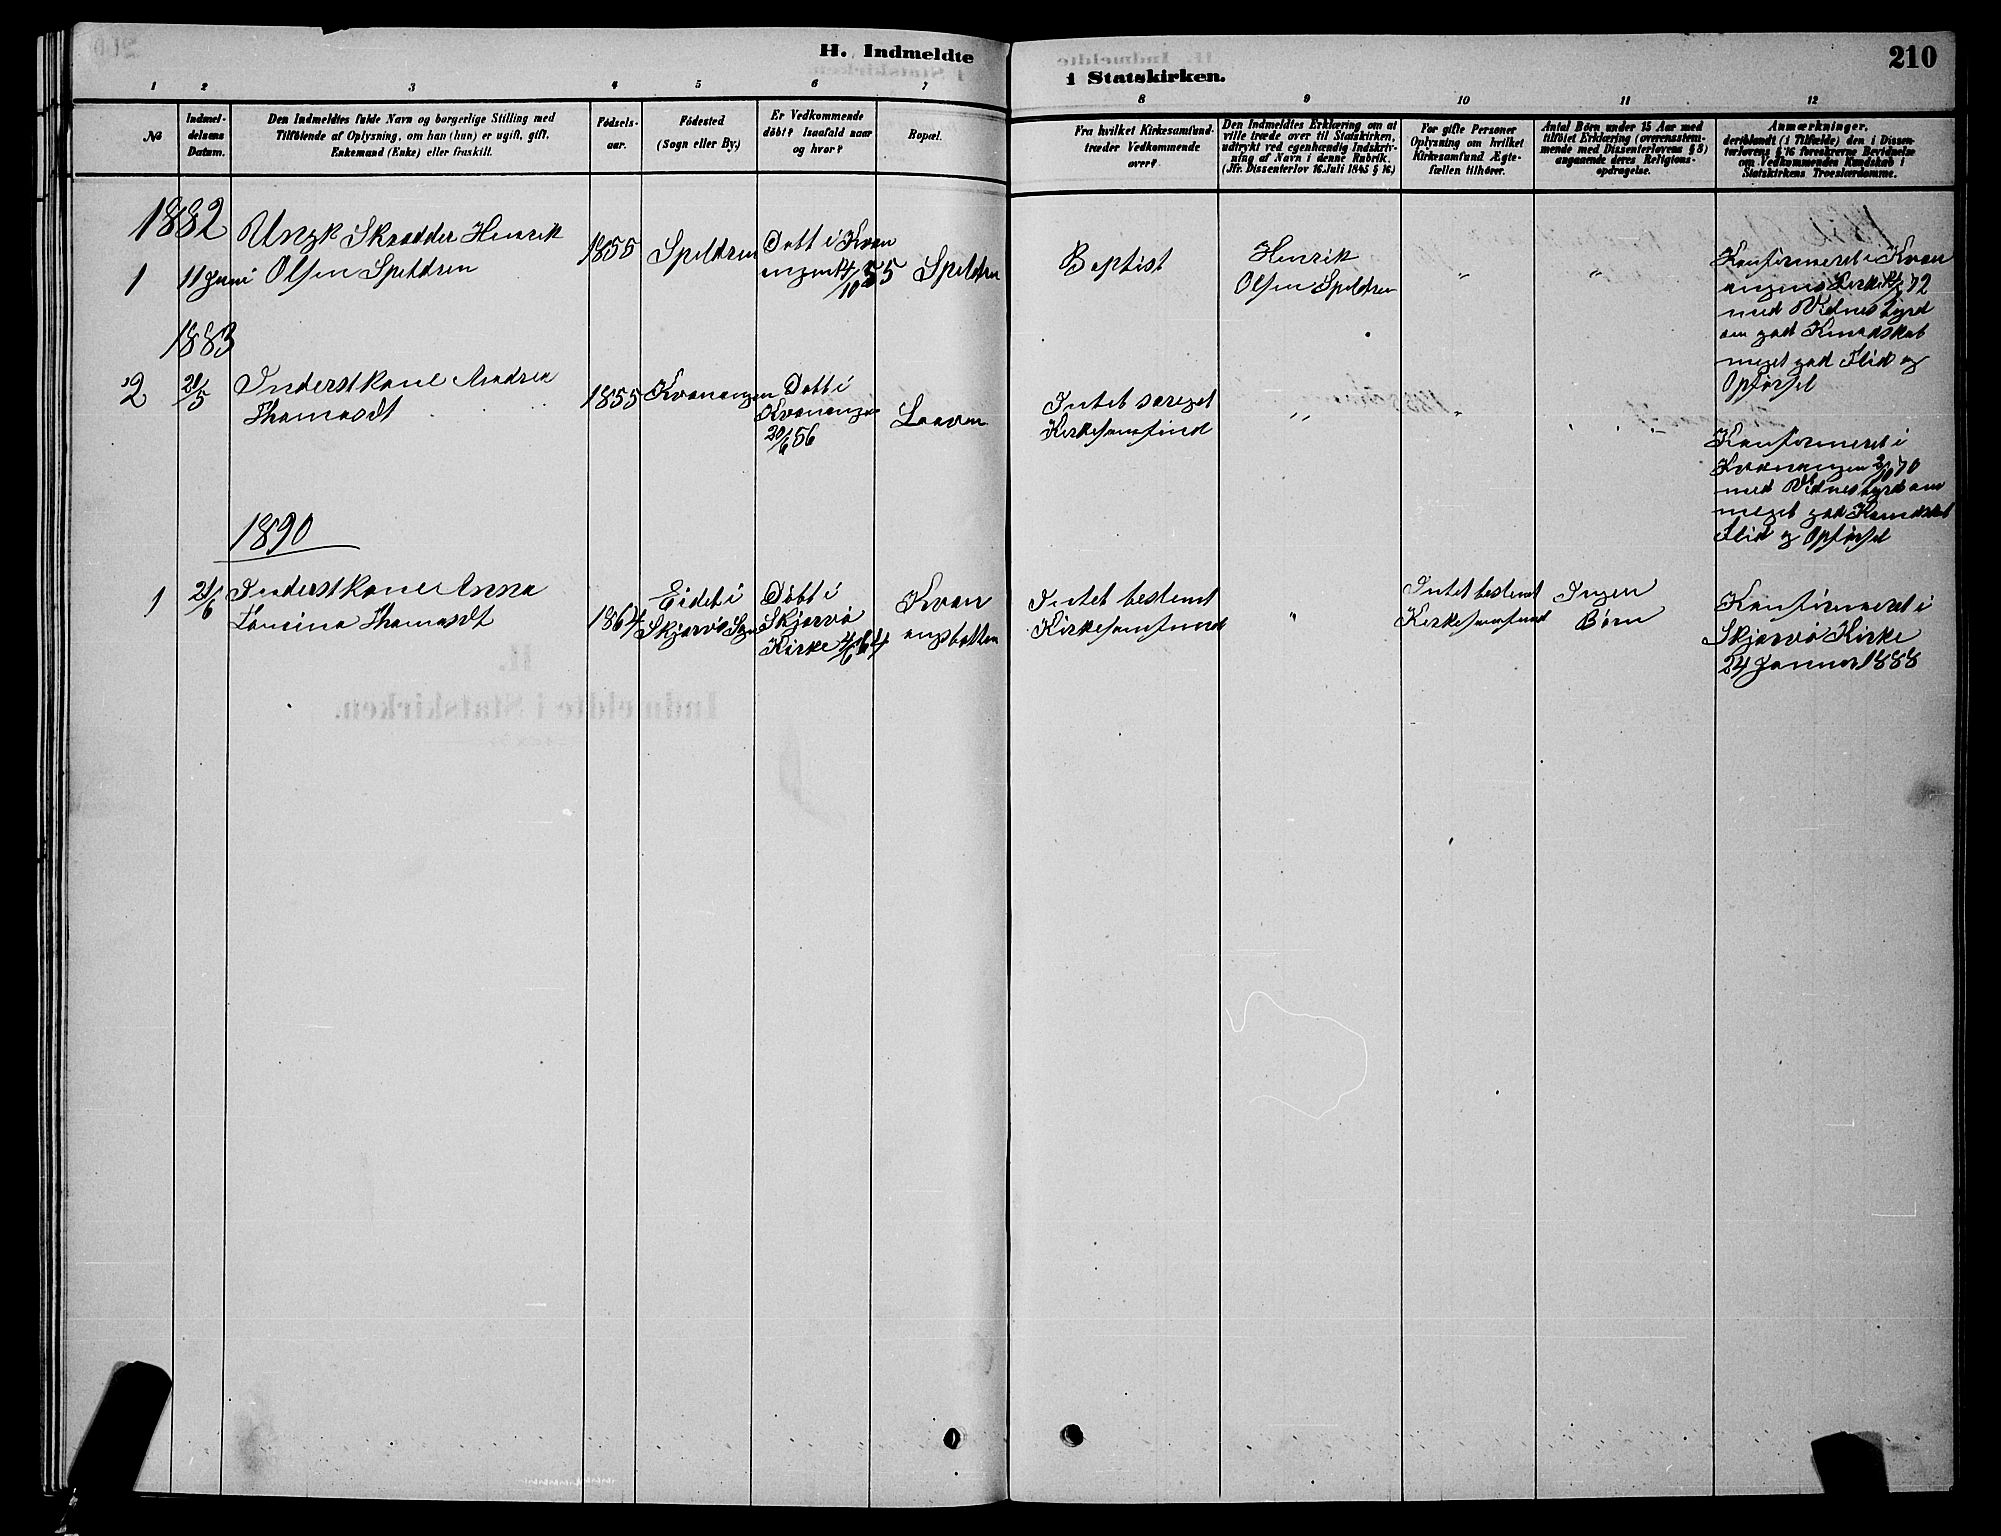 H. Indmeldte
i Statskirken.
210
1 2 3 4 5 6 7 8 9 10 11 12
№
Indmel-
delsens
Datum.
Den Indmeldtes fulde Navn og borgerlige Stilling med
Tilföiende af Oplysning, om han (hun) er ugift, gift,
Enkemand (Enke) eller fraskilt.
Födsels-
aar.
Födested
(Sogn eller By.)
Er Vedkommende
döbt? Isaafald naar
og hvor?
Bopæl.
Fra hvilket Kirkesamfund
træder Vedkommende
over?
Den Indmeldtes Erklæring om at
ville træde over til Statskirken,
udtrykt ved egenhændig Indskriv-
ning af Navn i denne Rubrik.
(Jfr. Dissenterlov 16. Juli 1845 § 16.)
For gifte Personer
Oplysning om hvilket
Kirkesamfund Ægte-
fællen tilhörer.
Antal Börn under 15 Aar med
tilföiet Erklæring (overensstem-
mende med Dissenterlovens § 8)
angaaende deres Religions-
opdragelse.
Anmærkninger,
deriblandt (i Tilfælde) den i Dissen-
terlovens § 16 foreskrevne Bevidnelse
om Vedkommendes Kundskab i
Statskirkens Troeslærdomme.
1882
1
11 Juni
Ungk Skrædder Henrik
Olsen Speldren
1855
Speldren
Döbt i Kvæn
angen 14/10 55
Speldren
Baptist
Henrik
Olsen Speldren
"
"
Konfirmeret i Kvæn
angens Kirke 72
med Vidnesbyrd
om god Kundskab
meget god Flid og
Opførsel
1883
2
21/5
Inderstkone Andrea
Thomasdt
1855
Kvænangen
Döbt i
Kvænangen
20/6 56
Laavan
Intet særeget
Kirkesamfund
"
"
"
Konfirmeret i
Kvænangen 2/10 70
med Vidnesbyrd om
meget god Kundskab
Flid og Opførsel
1890
1
21/6
Inderstkone Anna
Larsina Thomasdt
1864
Eidet i
Skjærvø Sogn
Döbt i
Skjærvø
Kirke 4/6 64
Kvæn
angsbotten
Intet bestemt
Kirkesamfund
"
Intet bestemt
Kirkesamfund
Ingen
Børn
Konfirmeret i
Skjærvø Kirke
24 Januar 1888